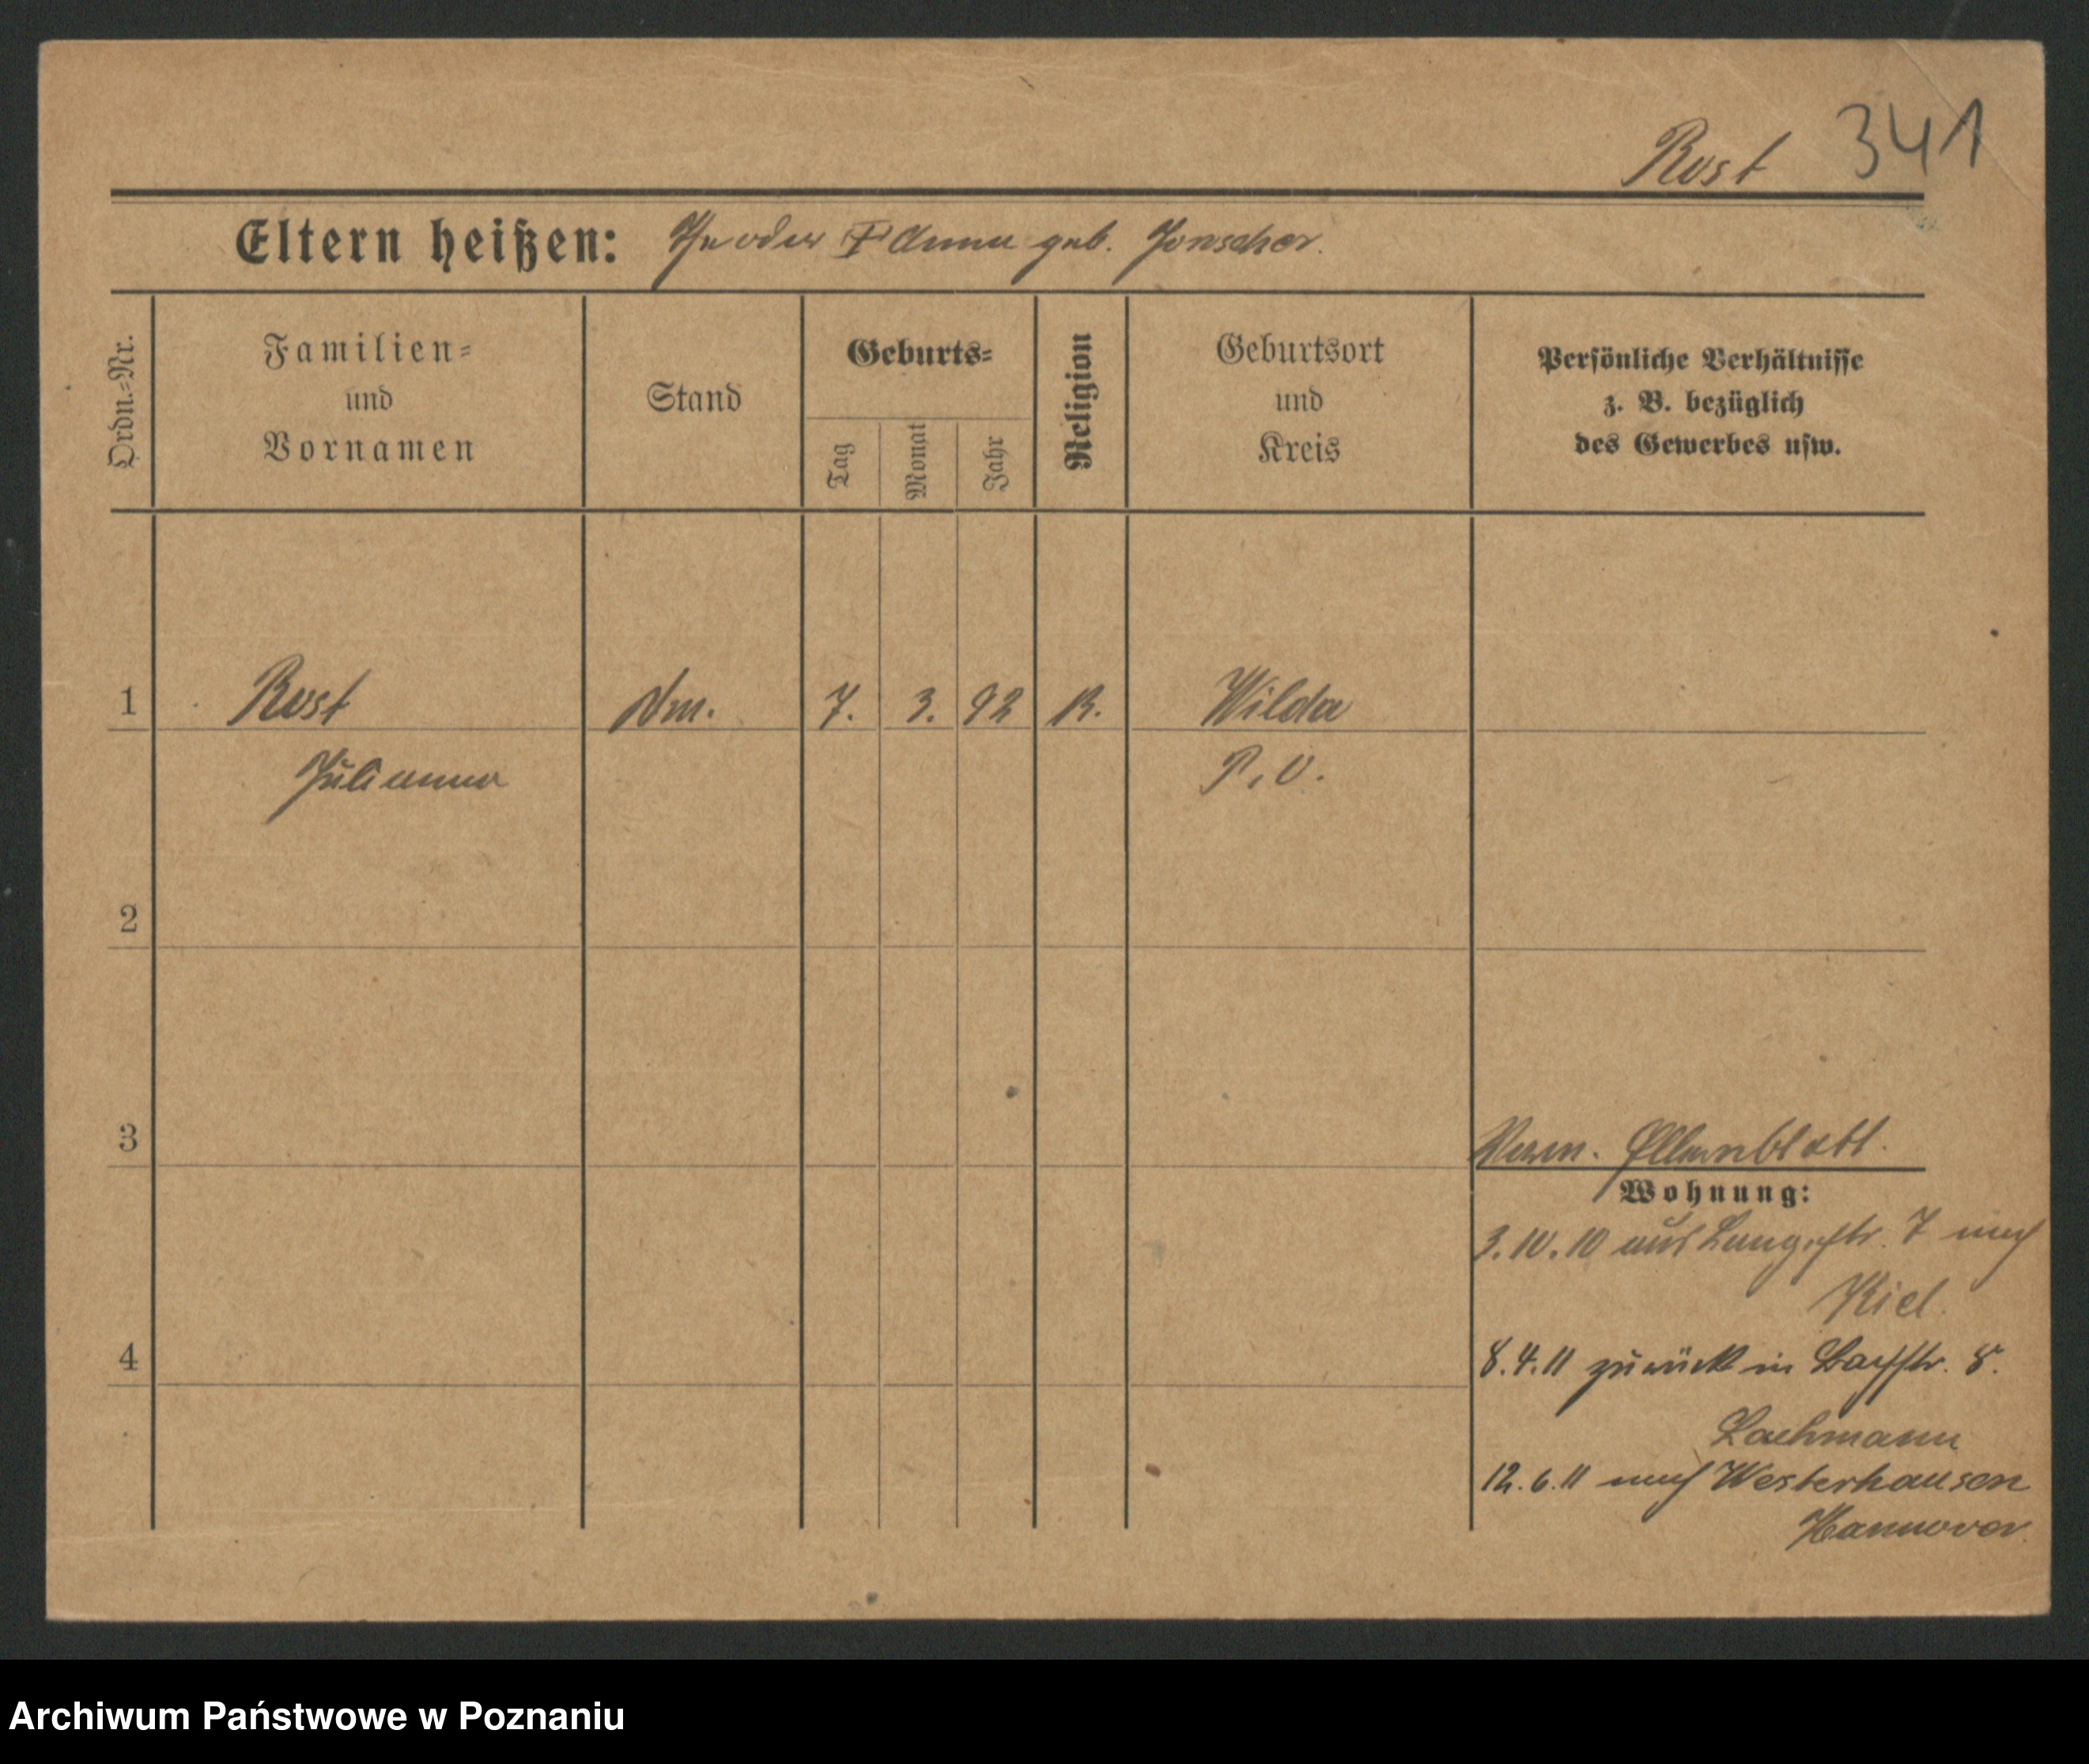 Rost 341
Eltern heißen: Theodor & Anna geb. Jonscher.
Ordn.-Nr.
Familien-
und
Vornamen
Stand
Geburts-
Tag
Monat
Jahr
Religion
Geburtsort
und
Kreis
Persönliche Verhältnisse
z. B. bezüglich
des Gewerbes usw.
1 Rost Dm. 7. 3. 92 K. Wilda
Julianna P. O.
2
3
Verm. Elternblatt.
Wohnung:
3.10.10 aus Langestr. 7 nach
Kiel.
4
8.4.11 zurück in 8.
Lachmann
12.6.11 nach Westerhausen
Hannover.
Archiwum Państwowe w Poznaniu